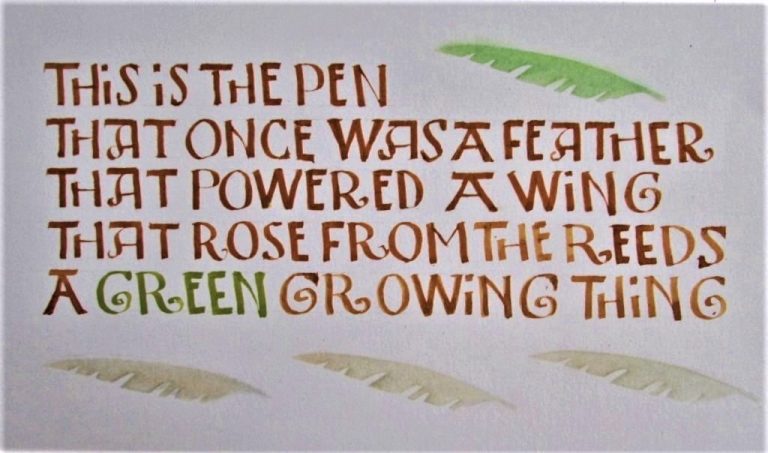 THiS iS THE PEN
THAT ONCE WAS A FEATHER
THAT POWERED A WiNG
THAT ROSE FROM THE REEDS
A GREEN GROWiNG THiNG